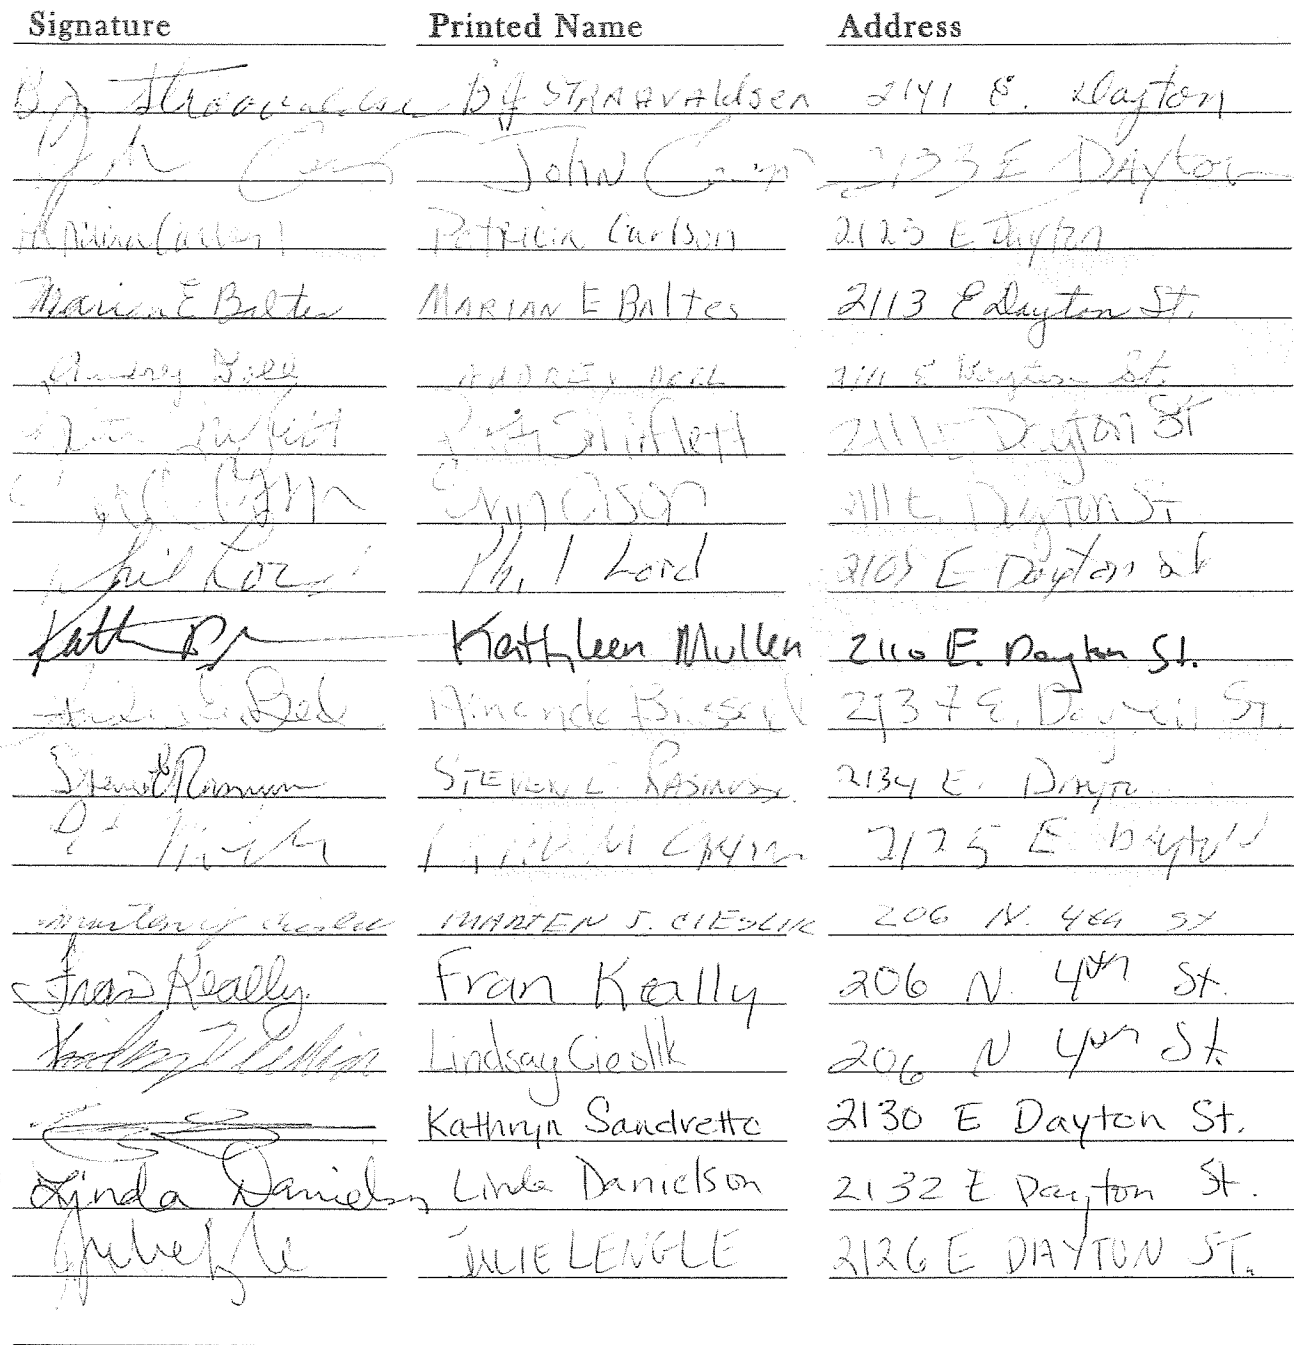 Signature Printed Name Address
BJ Straavaldsen BJ STRAAVAldsen 2141 E. Dayton
John John 2133 E Dayton
Patricia Carlson Patricia Carlson 2125 E Dayton
Marian E Baltes MARIAN E BAltes 2113 E Dayton St.
Audrey Doll AUDREY DOLL 2111 E Dayton St.
Shiflett 2111 E Dayton St
Olson 2111 E. Dayton St.
Phil Lord Phil Lord 2105 E Dayton St
Kathleen Mullen 2110 E. Dayton St.
2137 E. Dayton St.
STEVEN E. RASMUSS 2134 E. Dayto
2125 E Dayton
Marten J Cieslik MARTEN J. CIESLIK 206 N. 4th ST
Fran Keally Fran Keally 206 N. 4th St.
Lindsay Cieslik 206 N 4th St.
Kathryn Sandretto 2130 E Dayton St.
Linda Danielson Linda Danielson 2132 E Dayton St.
JULIE LENGLE 2126 E DAYTON ST.